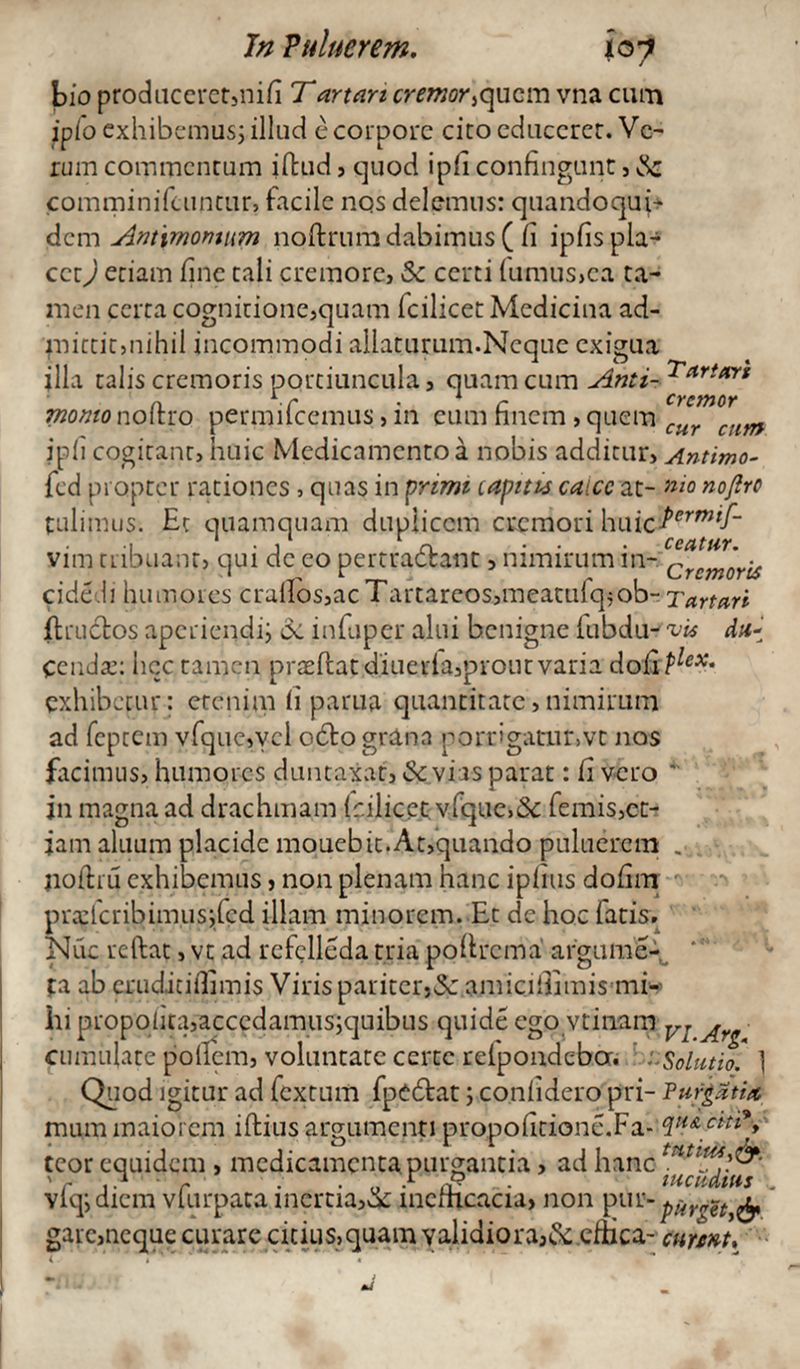 In Puluerem. 107
bio produceret,niſi Tartari cremor,quem vna cum
ipſo exhibemus; illud è corpore cito educeret. Ve-
rum commentum iſtud, quod ipſi confingunt, &
comminiſcuntur, facile nos delemus: quandoqui-
dem Antimonium noſtrum dabimus ( ſi ipſis pla-
cet) etiam ſine tali cremore, & certi ſumus,ea ta-
men certa cognitione,quam ſcilicet Medicina ad-
mittit,nihil incommodi allaturum.Neque exigua
illa talis cremoris portiuncula, quam cum Anti-
monio noſtro permiſcemus, in eum finem, quem
ipſi cogitant, huic Medicamento à nobis additur,
ſed propter rationes, quas in primi capitis calce at-
tulimus. Et quamquam duplicem cremori huic
vim tribuant, qui de eo pertractant, nimirum in-
cidēdi humores craſſos,ac Tartareos,meatuſq;ob-
ſtructos aperiendi; & inſuper alui benigne ſubdu-
cendæ: hęc tamen præſtat diuerſa,prout varia doſi
exhibetur: etenim ſi parua quantitate, nimirum
ad ſeptem vſque,vel octo grana porrigatur,vt nos
facimus, humores duntaxat, & vias parat: ſi vero
in magna ad drachmam ſcilicet vſque,& ſemis,et-
iam aluum placide mouebit.At,quando puluerem
noſtrū exhibemus, non plenam hanc ipſius doſim
præſcribimus;ſed illam minorem. Et de hoc ſatis.
Nūc reſtat, vt ad refellēda tria poſtrema argumē-
ta ab eruditiſſimis Viris pariter,& amiciſſimis mi-
hi propoſita,accedamus;quibus quidē ego vtinam
cumulate poſſem, voluntate certe reſpondebo.
Quod igitur ad ſextum ſpectat; conſidero pri-
mum maiorem iſtius argumenti propoſitionē.Fa-
teor equidem, medicamenta purgantia, ad hanc
vſq; diem vſurpata inertia,& inefficacia, non pur-
gare,neque curare citius,quam validiora,& effica-
Tartari
cremor
cur cum
Antimo-
nio noſtro
permiſ-
ceatur.
Cremoris
Tartari
vis du-
plex.
VI. Arg.
Solutio.
Purgātia
quæ citi9,
tutius,&
iucūdius
purgēt,&
curent.